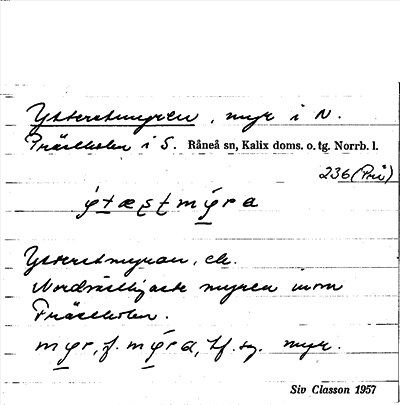 Ytterstmyren, myr i N.
Prästholm i S. Råneå sn, Kalix doms. o. tg. Norrb. l.
236 (Prä)
Ytterstmyran, ek.
Nordvästligaste myren inom
Prästholm.
myr, f. mýra, bf. sg. myr.
Siv Classon 1957